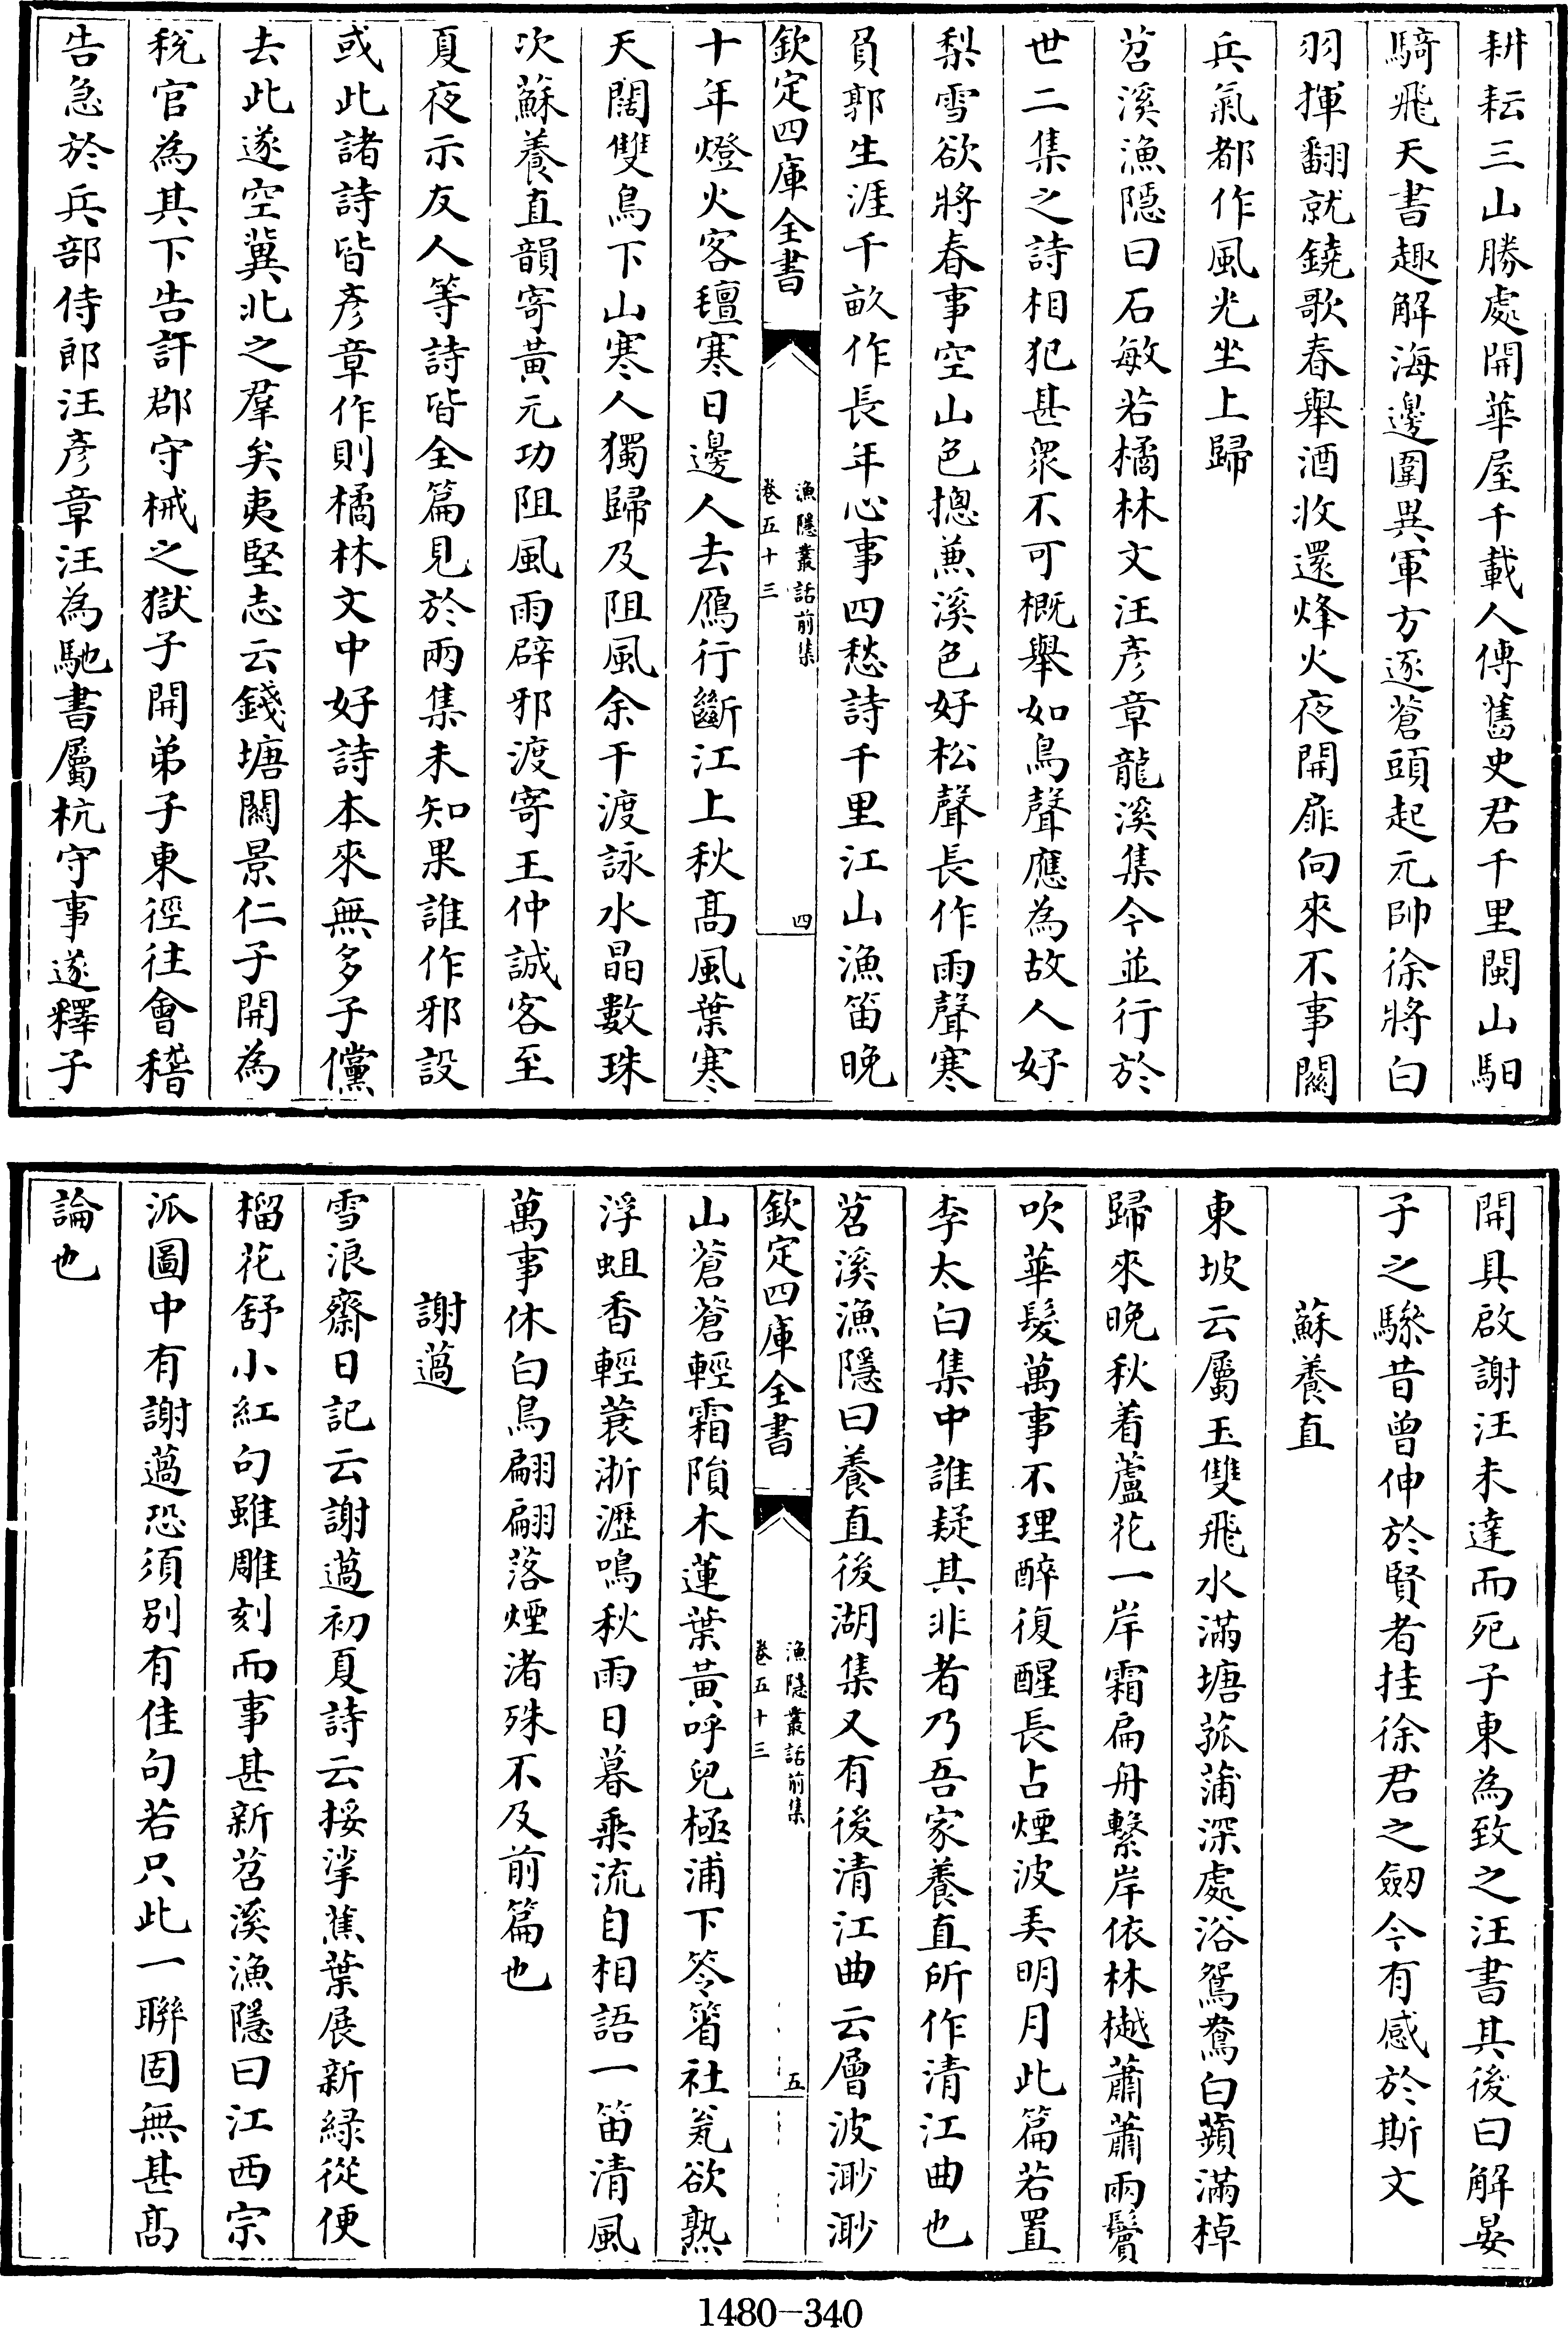 耕耘三山勝處開華屋千載人傳舊史君千里閩山馹
騎飛天書趣解海邊圍異軍方逐蒼頭起元帥徐將白
羽揮翻就鐃歌春舉酒收還烽火夜開扉向來不事關
兵氣都作風光坐上歸
苕溪漁隱曰石敏若橘林文汪彥章龍溪集今並行於
世二集之詩相犯甚衆不可概舉如鳥聲應為故人好
梨雪欲將春事空山色摠兼溪色好松聲長作雨聲寒
負郭生涯千畝作長年心事四愁詩千里江山漁笛晚
欽定四庫全書
漁隱叢話前集
卷五十三
四
十年燈火客氊寒日邊人去鴈行斷江上秋髙風葉寒
天闊雙鳥下山寒人獨歸及阻風余干渡詠水晶數珠
次蘇養直韻寄黃元功阻風雨辟邪渡寄王仲誠客至
夏夜示友人等詩皆全篇見於兩集未知果誰作邪設
或此諸詩皆彥章作則橘林文中好詩本來無多子儻
去此遂空冀北之羣矣夷堅志云錢塘關景仁子開為
稅官為其下告訐郡守械之獄子開弟子東徑往會稽
告急於兵部侍郎汪彥章汪為馳書屬杭守事遂釋子
開具啟謝汪未達而死子東為致之汪書其後曰解晏
子之驂昔曾伸於賢者挂徐君之劒今有感於斯文
蘇養直
東坡云屬玉雙飛水滿塘菰蒲深處浴鴛鴦白蘋滿棹
歸來晚秋着蘆花一岸霜扁舟繫岸依林樾蕭蕭兩鬢
吹華髮萬事不理醉復醒長占煙波弄明月此篇若置
李太白集中誰疑其非者乃吾家養直所作清江曲也
苕溪漁隱曰養直後湖集又有後清江曲云層波渺渺
欽定四庫全書
漁隱叢話前集
卷五十三
五
山蒼蒼輕霜隕木蓮葉黃呼兒極浦下笭箵社瓮欲熟
浮蛆香輕蓑淅瀝鳴秋雨日暮乗流自相語一笛清風
萬事休白鳥翩翩落煙渚殊不及前篇也
謝薖
雪浪齋日記云謝薖初夏詩云挼挲蕉葉展新綠從臾
榴花舒小紅句雖雕刻而事甚新苕溪漁隱曰江西宗
派圖中有謝薖恐須別有佳句若只此一聯固無甚髙
論也
1480-340